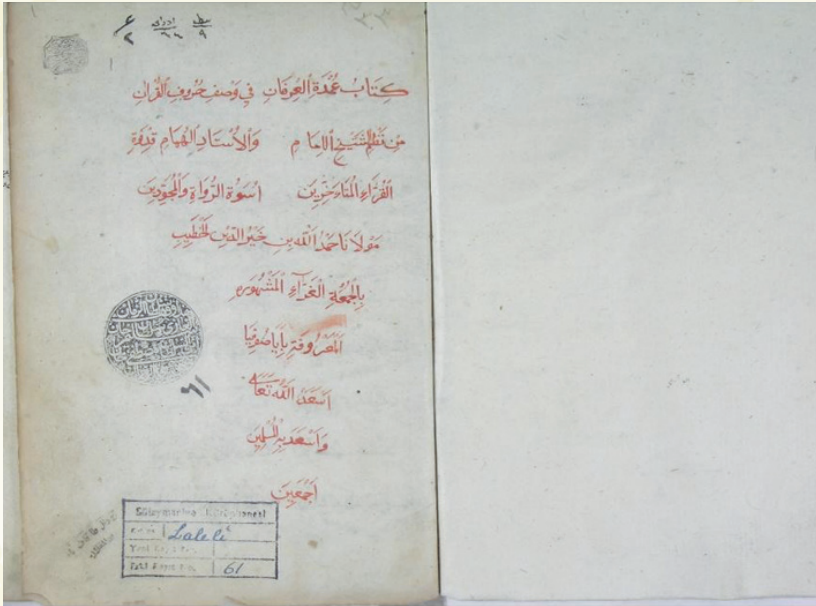 كِتَابُ عُمْدَةِ الْعِرْفَانِ فِي وَصْفِ حُرُوفِ الْقُرْآنِ
مِن نَظْمِ الشَّيْخِ الْإِمَامِ وَالْأُسْتَادِ الْهُمَامِ قِدْوَةِ
الْقُرَّاءِ الْمُتَأَخِّرِينَ أُسْوَةِ الرُّوَاةِ وَالْمُجَوِّدِينَ
مَوْلَانَا حَمْدُ اللّٰه بِن خَيْرِ الدِّينِ الْخَطِيبِ
بِالْجُمُعَةِ الْغَرَّاءِ الْمَشْهُورَةِ
الْمَعْرُوفَةِ بِأَيَا صُوفِيَا
أَسْعَدَهُ اللّٰهُ تَعَالَى
وَأَسْعَدَ بِهِ الْمُسْلِمِينَ
أَجْمَعِينَ
٦١
Süleymaniye Kütüphanesi
Laleli
Yeni Kayıt No.
Eski Kayıt No. 61